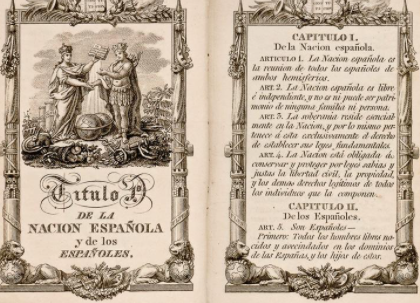 Título I.
DE LA
NACION ESPAÑOLA
y de los
ESPAÑOLES.
CAPITULO I.
De la Nacion española.
ARTICULO 1. La Nacion española es
la reunion de todos los españoles de
ambos hemisferios.
ART. 2. La Nacion española es libre
é independiente, y no es ni puede ser patri-
monio de ninguna familia ni persona.
ART. 3. La soberanía reside esencial-
mente en la Nacion, y por lo mismo per-
tenece á esta exclusivamente el derecho
de establecer sus leyes fundamentales.
ART. 4. La Nacion está obligada á
conservar y proteger por leyes sabias y
justas la libertad civil, la propiedad,
y los demas derechos legítimos de todos
los individuos que la componen.
CAPITULO II.
De los Españoles.
ART. 5. Son Españoles—
Primero: Todos los hombres libres na-
cidos y avecindados en los dominios
de las Españas, y los hijos de estos.